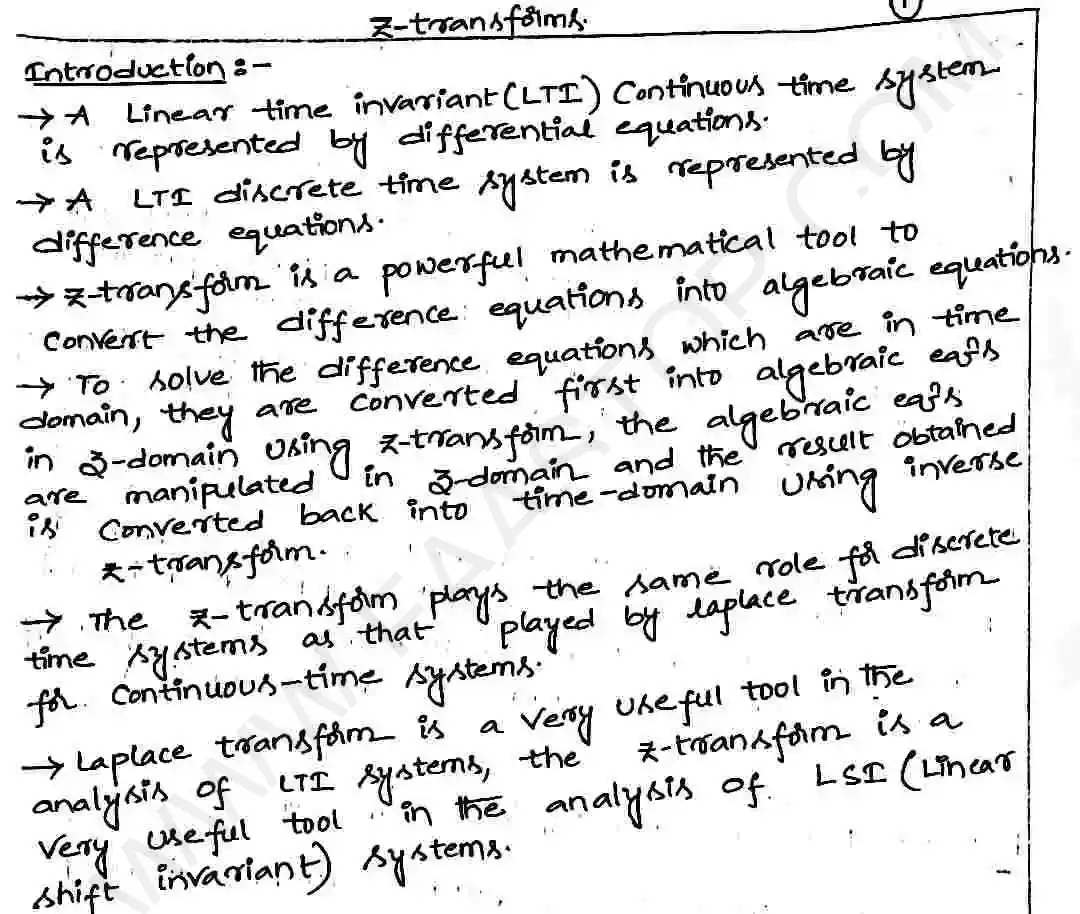 1
Z-transforms.
Introduction :-
→ A Linear time invariant (LTI) Continuous time system
is represented by differential equations.
→ A LTI discrete time system is represented by
difference equations.
→ Z-transform is a powerful mathematical tool to
convert the difference equations into algebraic equations.
→ To solve the difference equations which are in time
domain, they are converted first into algebraic eqⁿs
in Z-domain using Z-transform, the algebraic eqⁿs
are manipulated in Z-domain and the result obtained
is converted back into time-domain using inverse
Z-transform.
→ The Z-transform plays the same role for discrete
time systems as that played by laplace transform
for Continuous-time systems.
→ Laplace transform is a very useful tool in the
analysis of LTI systems, the Z-transform is a
very useful tool in the analysis of LSI (Linear
shift invariant) systems.